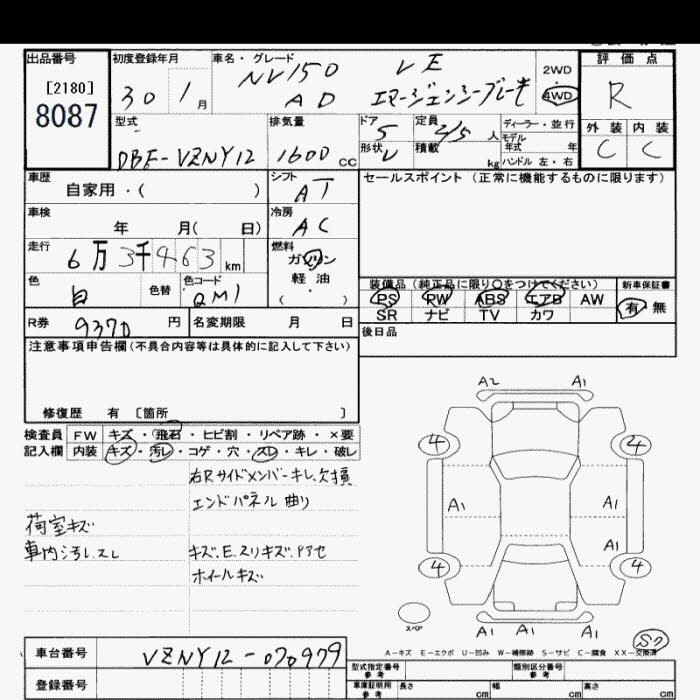 出品番号
[2180]
8087
初度登録年月
30 1月
車名・グレード
NV150 VE
AD エマージェンシーブレーキ
2WD
4WD
評価点
R
外装 内装
C C
型式
DBF-VZNY12
排気量
1600 CC
ドア
5
定員
2/5 人
形状
V
積載
kg
ディーラー・並行
モデル年式 年
ハンドル 左・右
車歴
自家用・( )
シフト
AT
車検
年 月( 日)
冷房
AC
走行
6万3千463 km
燃料
ガソリン
軽油
( )
色
白
色替
色コード
QM1
R券
9370 円
名変期限 月 日
セールスポイント (正常に機能するものに限ります)
装備品 (純正品に限り○をつけてください)
PS PW ABS エアB AW
SR ナビ TV カワ
新車保証書
有 無
後日品
注意事項申告欄(不具合内容等は具体的に記入して下さい)
修復歴 有 〔箇所 〕
検査員 FW キズ・飛石・ヒビ割・リペア跡・×要
記入欄 内装 キズ・汚レ・コゲ・穴・スレ・キレ・破レ
右Rサイドメンバーキレ、欠損
エンドパネル曲り
荷室キズ
車内汚レ、スレ
キズ、E、スリキズ、アセ
ホイールキズ
A2 A1
4 4
A1 A1
A1
4 4
A1 A1 A1
スペア
A-キズ E-エクボ U-凹み W-補修跡 S-サビ C-腐食 XX-交換済
車台番号
VZNY12-070979
登録番号
型式指定番号
参考
類別区分番号
参考
車庫証明用
参考
長さ cm
幅 cm
高さ cm